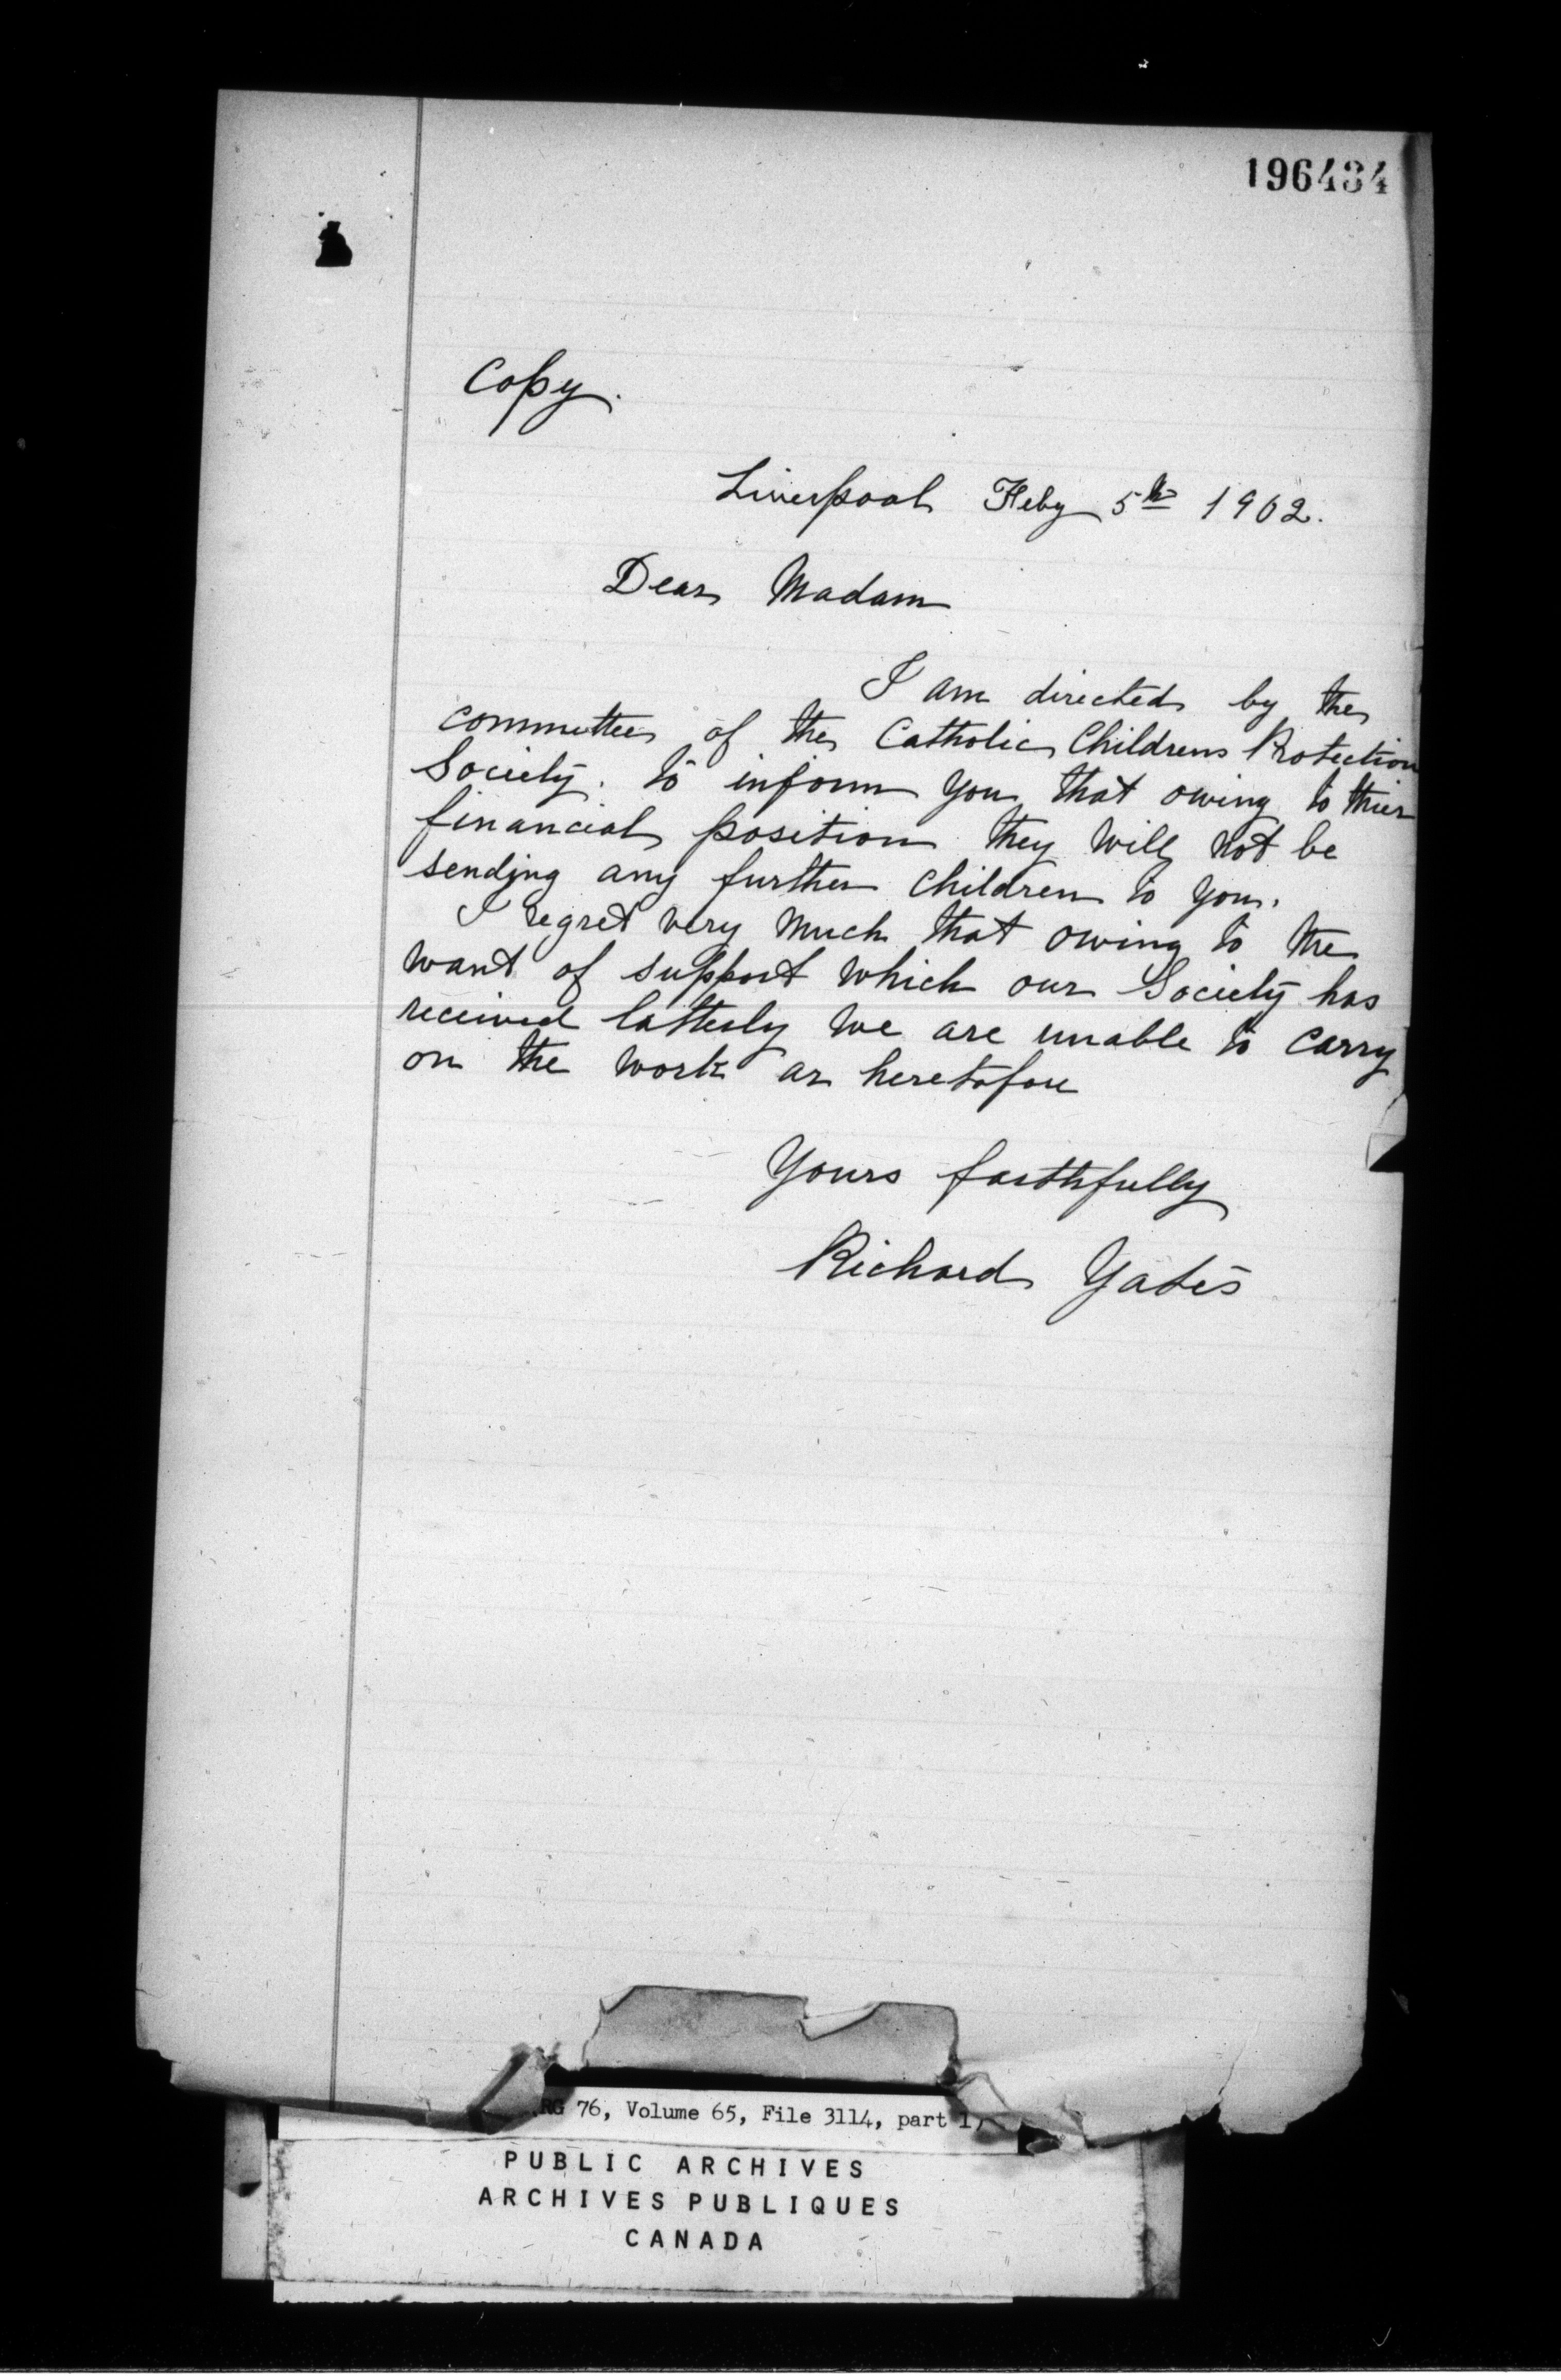 196434
Copy.
Liverpool Feby 5th 1902.
Dear Madam
I am directed by the
committee of the Catholic Childrens Protection
Society. to inform you that owing to thier
financial position they will not be
sending any further children to you.
I regret very much that owing to the
want of support which our Society has
received latterly we are unable to carry
on the work as heretofore
Yours faithfully
Richard Yates
RG 76, Volume 65, File 3114, part 1,
PUBLIC ARCHIVES
ARCHIVES PUBLIQUES
CANADA